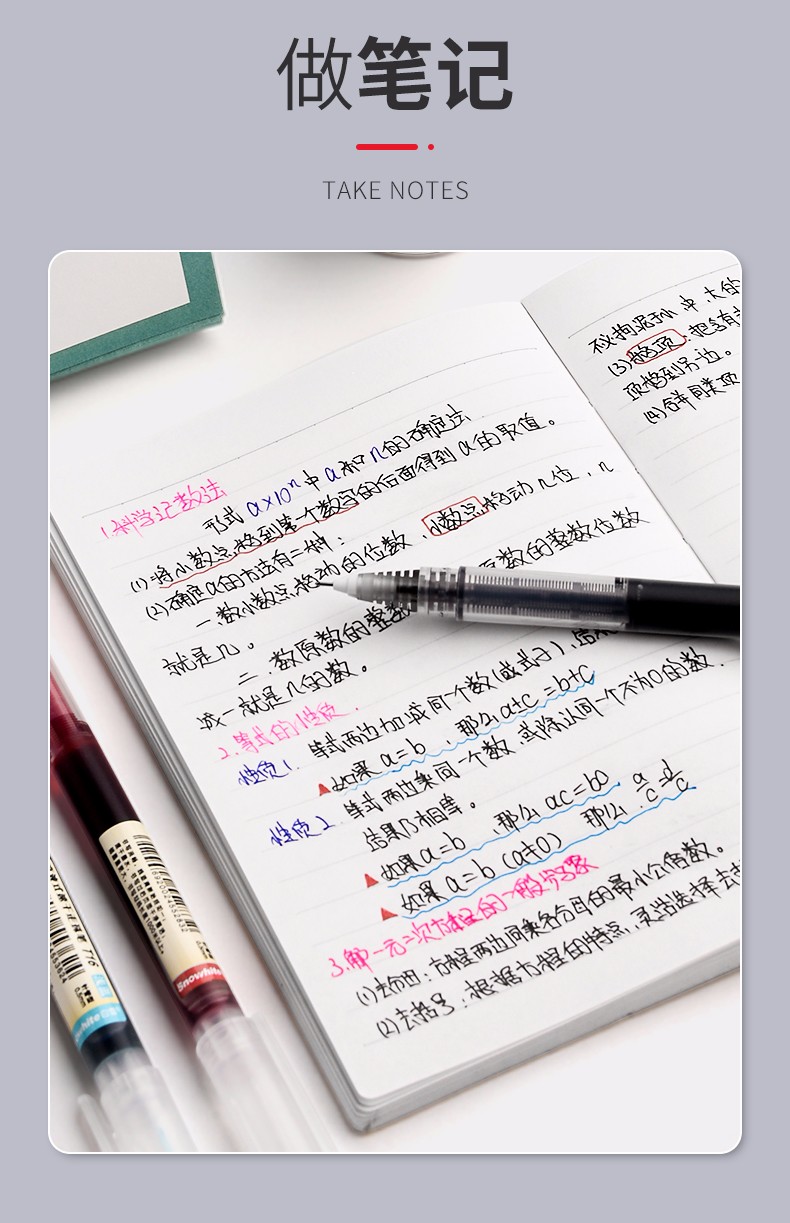 做笔记
TAKE NOTES
1.科学记数法
形式 a×10ⁿ 中 a 和 n 的确定法
(1)将小数点移到第一个数字的后面得到 a 的取值。
(2)确定 n 的方法有二种:
一.数小数点移动的位数,小数点移动 n 位, n
就是几。
二.数原数的整数 原数的整数位数
减一就是 n 的数。
2.等式的性质.
性质1. 等式两边加或减同一个数(或式子),结果
▲如果 a=b 那么 a+c=b+c
性质2. 等式两边乘同一个数,或除以同一个不为0的数.
结果仍相等。
▲如果 a=b ,那么 ac=bc
▲如果 a=b (a≠0) 那么
3.解一元二次方程的一般步骤
(1)去分母:方程两边同乘各分母的最小公倍数。
(2)去括号:根据方程的特点,灵活选择去括
中 大的
(3)移项:把含有
项移到另一边。
(4)合并同类项
Snowhite